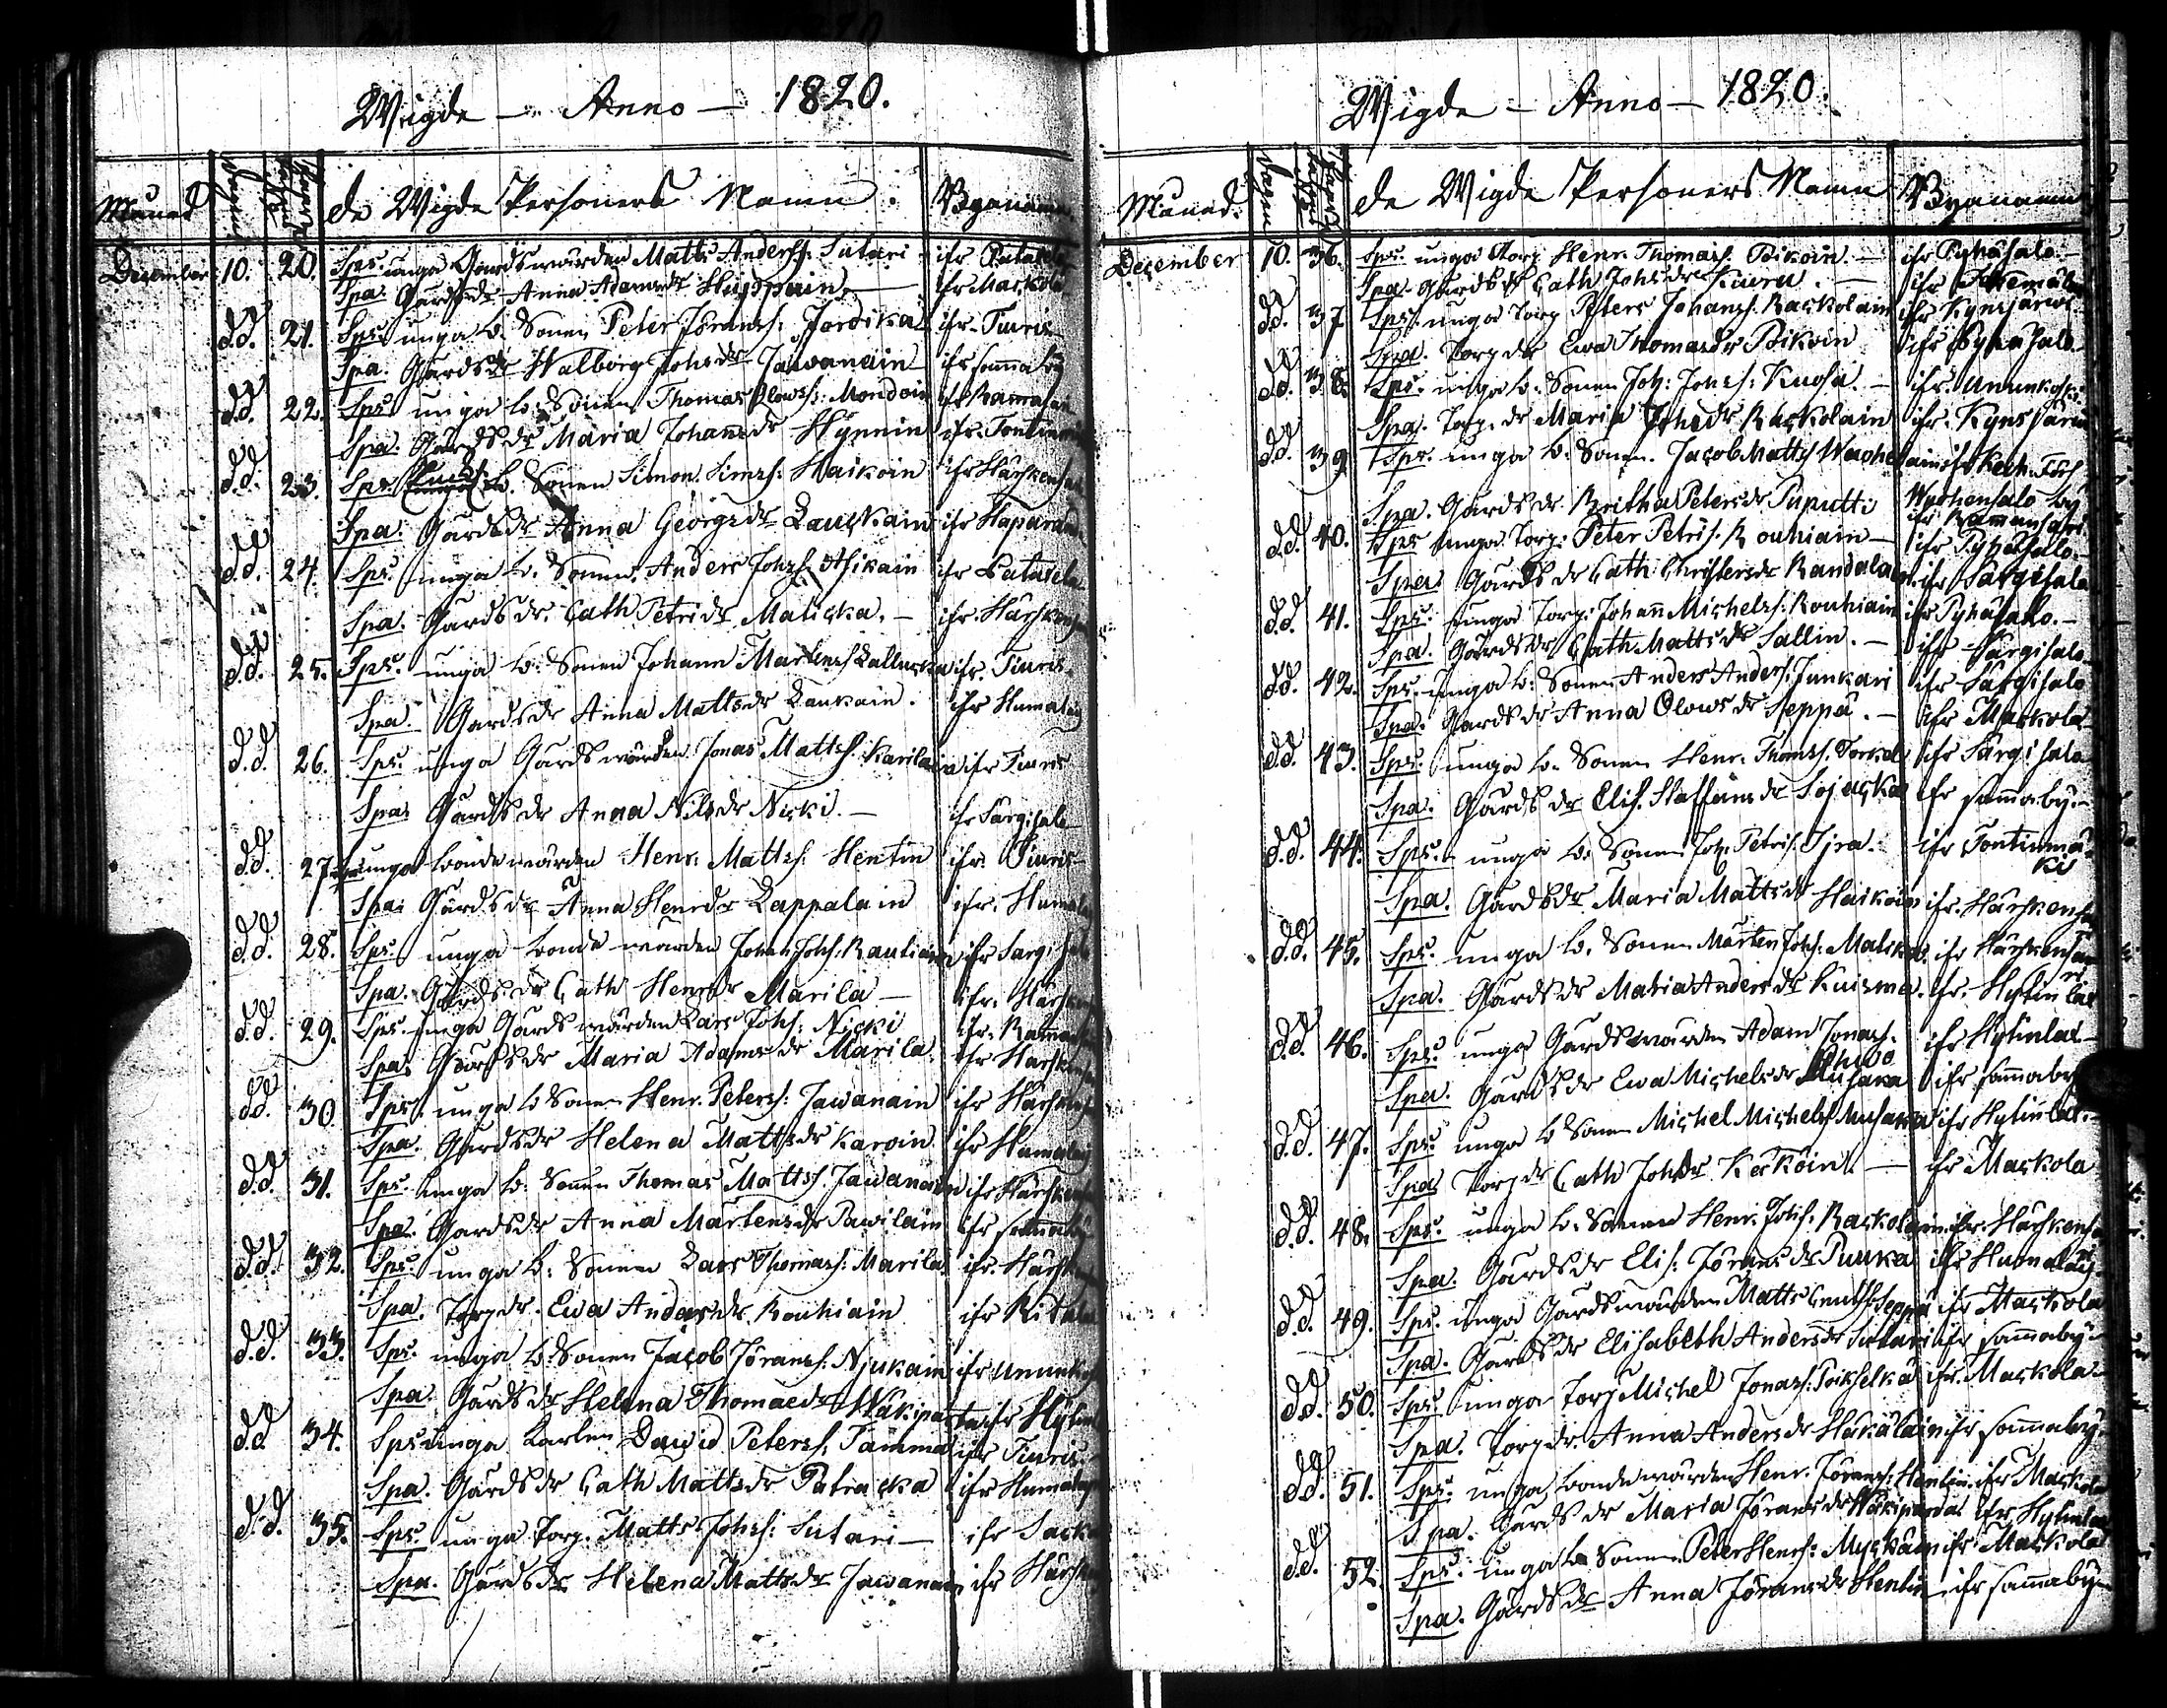 Wigde — Anno — 1820.
Månad Dagen de Wigde Personers Namn. Bynamn
December 10. 20. Sps. unga Gårdsmården Matts Anderss: Sutari ifr
Spa. Gårdsdr Anna Adamsdr Huppain — ifr Mackola
d.d. 21. Sps. unga b. Sonen Peter Jöranss: Jordika ifr. Tiuris
Spa. Gårdsdr Walborg Johsdr Jawanain ifr samma by
d.d. 22. Sps. unga b. Sonen Thomas Olowss: Mondoin ifr
Spa. Gårdsdr Maria Johansdr Hynnin ifr. Tontin
d.d. 23. Sps. b. Sonen Simon Simss: Haikoin ifr Härskens
Spa. Gårdsdr Anna Georgsdr Lauckain ifr Haparain
d.d. 24. Sps. unga b. Sonen Anders Johss: Asikain ifr Patasela
Spa. Gårdsdr. Cath Petridr Maticka. — ifr. Härskens
d.d. 25. Sps. unga b. Sonen Johann Mårtenss Lallucka ifr. Tiuris.
Spa. Gårdsdr Anna Mattsdr Laukain. ifr Humala
d.d. 26. Sps. unga Gårdsmården Jonas Mattss. Karilain ifr Tiuris
Spa. Gårdsdr Anna Nilsdr Nicki. — ifr Särgisalo
d.d. 27. Sps. unga bondemården Henr. Mattss: Hentin ifr. Tiuris
Spa. Gårdsdr Anna Henrdr Lappalain ifr. Humala
d.d. 28. Sps. unga bondemården Johan Johss: Rautiain ifr Särgisalo
Spa. Gårdsdr Cath Henrdr Marila — ifr. Härskens
d.d. 29. Sps. unga Gårdsmården Lars Johss: Nicki ifr.
Spa. Gårdsdr Maria Adamsdr Marila. ifr Härskens
d.d. 30. Sps. unga b Sonen Henr. Peterss: Jawanain ifr Härskens
Spa. Gårdsdr Helena Mattsdr Karoin ifr Humala
d.d. 31. Sps. unga b. Sonen Thomas Mattss. Jawanain ifr Härskens
Spa. Gårdsdr Anna Mårtensdr Pawilain ifr samma by
d.d. 32. Sps. unga b: Sonen Lars Thomass: Marila. ifr. Härskens
Spa. Torpdr. Ewa Andersdr Rouhiain ifr Ritala
d.d. 33. Sps. unga b. Sonen Jacob Jöranss: Njukain ifr Unnunkoski
Spa. Gårdsdr Helena Thomaedr Wäkiparta ifr Hytin
d.d. 34. Sps unga Karlen Dawid Peterss: Tamma ifr Tiuris.
Spa. Gårdsdr Cath Mattsdr Patracka ifr Humala
d.d. 35. Sps. unga Torp. Matts Johss: Sutari — ifr
Spa. Gårdsdr Helena Mattsdr Jawanain ifr Härskens
Wigde — Anno — 1820.
Månad. Dagen de Wigde Personers Namn Bynamn
December 10. 36. Sps. unga Torp Henr. Thomass. Poikoin. — ifr Pyhäsalo. —
Spa. Gårdsdr Cath Johsdr Kuuru. — ifr
d.d. 37 Sps. unga Torp Peters Johanss. Rackolain ifr Kynsjärwi
Spa. Torpdr Ewa Thomasdr Poikoin ifr Pyhäsalo.
d.d. 38. Sps. unga b. Sonen Joh: Johss: Kuosa. — ifr. Unnunkoski
Spa. Torp. dr Maria Johsdr Rackolain ifr. Kynsjärwi
d.d. 39 Sps. unga b. Sonen. Jacob Mattss Wachelain
Spa. Gårdsdr Britha Petersdr Puputti
d.d. 40. Sps unga Torp: Peter Petriss. Rouhiain — ifr Pyhäsalo.
Spa. Gårdsdr Cath Christersdr Randalain ifr Särgisalo
d.d. 41. Sps. unga Torp: Johann Michelss: Rouhiain ifr Pyhäsalo. —
Spa. Gårdsdr Cath Mattsdr Sallin. — ifr Särgisalo
d.d. 42. Sps. unga b: Sonen Anders Anderss: Junkari ifr Särgisalo
Spa. Gårdsdr Anna Olowsdr Seppä. — ifr Mackola
d.d. 43. Sps. unga b. Sonen Henr. Thomss. Torckel ifr Särgisalo
Spa. Gårdsdr Elis. Staffansdr Sojacka ifr samma by.
d.d. 44. Sps. unga b. Sonen Joh. Petriss. Ijra. ifr Tontinmä-
ki
Spa. Gårdsdr Maria Mattsdr Haikoin ifr. Härskens
d.d. 45. Sps. unga b. Sonen Mårten Johss: Maticka. ifr Härskensaa
ri
Spa. Gårdsdr Maria Andersdr Kuisma. ifr. Hytinlax
d.d. 46. Sps. unga Gårdsmården Adam Jonass. ifr Hytinlax
Spa. Gårdsdr Ewa Michelsdr Musaka ifr samma by
d.d. 47. Sps. unga b Sonen Michel Michelss Musaka ifr Hytinlax. —
Spa. Torpdr Cath Johsdr Keckoin — ifr Mackola
d.d. 48. Sps. unga b. Sonen Henr. Johss. Rackolain ifr. Härskens
Spa. Gårdsdr Elis: Jöransdr Puuka ifr Humala
d.d. 49. Sps. unga Gårdsmården Matts Cnutss: Seppä ifr Mackola
Spa. Gårdsdr Elisabeth Andersdr Sutari ifr samma by
d.d. 50. Sps. unga Torp Michel Jonass: Poikselkä ifr. Mackola.
Spa. Torpdr. Anna Andersdr Häkäläin ifr samma by.
d.d. 51. Sps. unga bondemården Henr. Jöranss: Hentin. ifr Mackola
Spa. Gårdsdr Maria Jöransdr Wäkiparda ifr Hytinlax
d.d. 52 Sps. unga b Sonen Peter Henrss: Myckäin ifr. Mackola
Spa. Gårdsdr Anna Jöransdr Hentin — ifr samma by